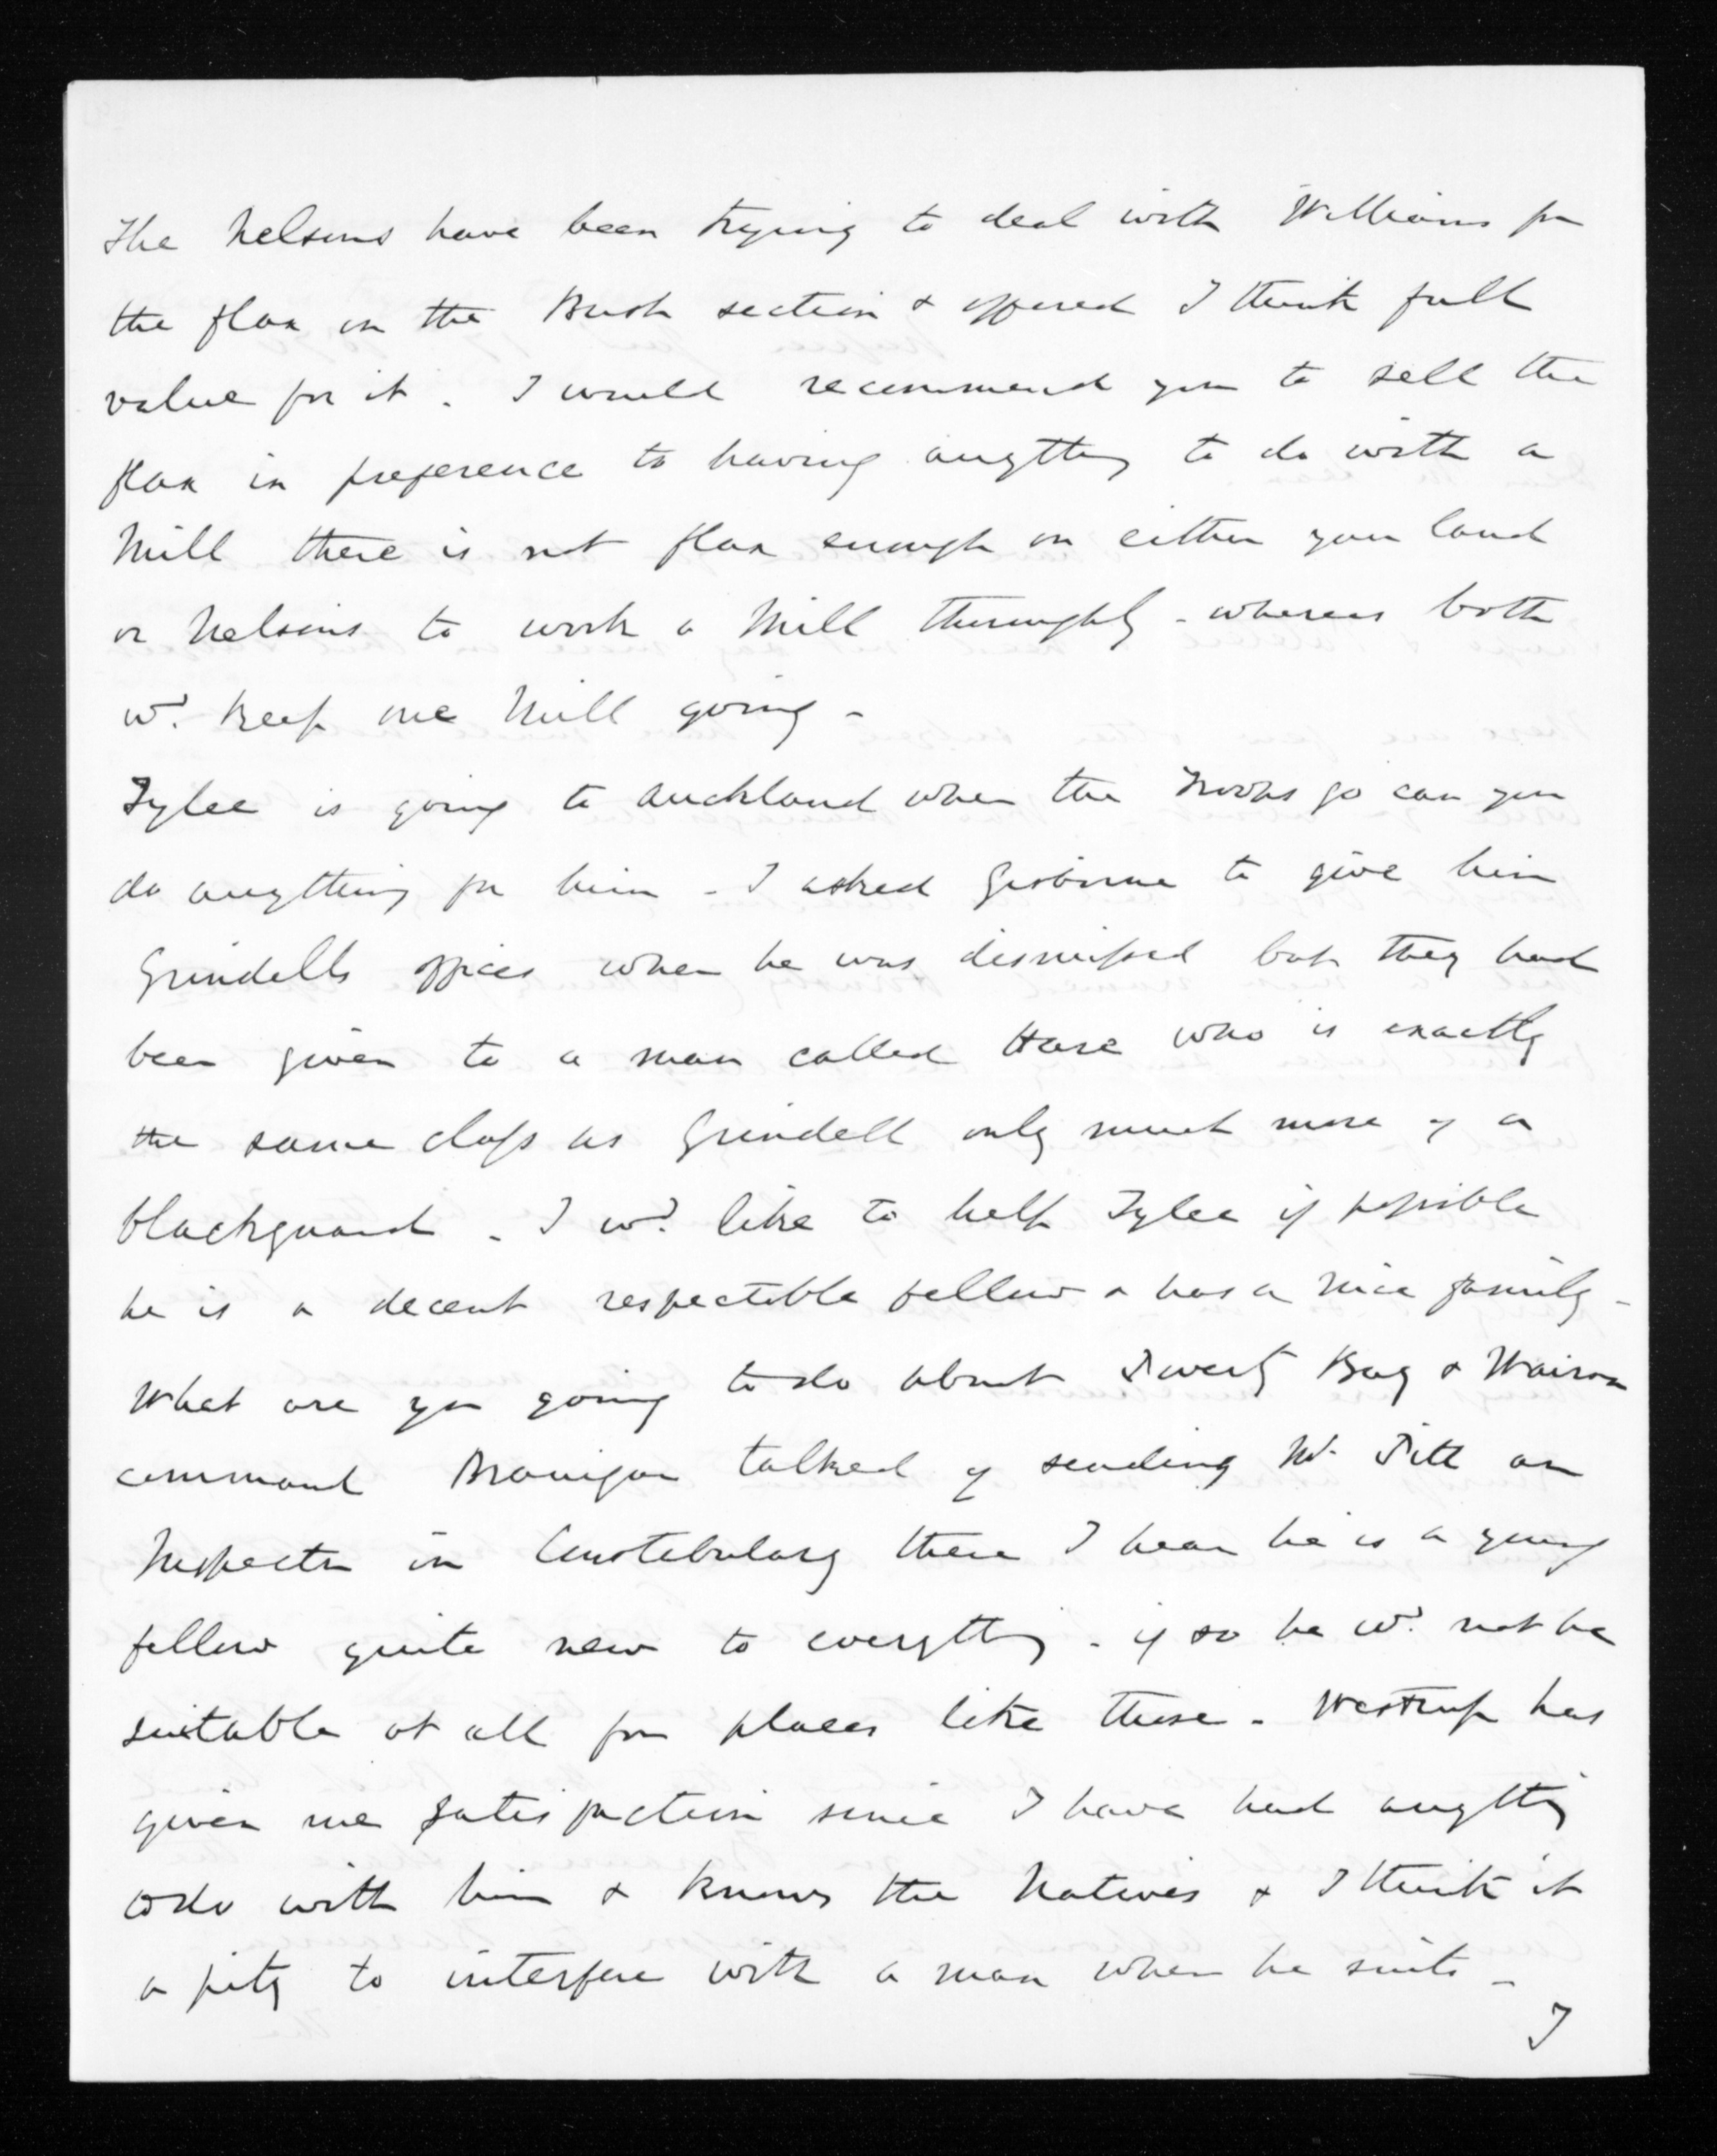 The Nelsons have been trying to deal with Williams for
the flax on the Bush section & offered I think full
value for it. I would recommend you to sell the
flax in preference to having anything to do with a
Mill there is not flax enough on either your land
or Nelsons to work a Mill thoroughly - whereas both
wd. keep one Mill going -
Tylee is going to Auckland when the Troops go can you
do anything for him - I asked Gisborne to give him
Grindells offices when he was dismissed but they had
been given to a man called Hare who is exactly
the same class as Grindell only much more of a
blackguard. I wd. like to help Tylee if possible
he is a decent respectable fellow & has a nice family -
What are you going to do about Poverty Bay & Wairoa
command Branigan talked of sending Mr. Pitt an
Inspector in Constabulary there I hear he is a young
fellow quite new to everything - if so he wd. not be
suitable at all for places like those - Westrup has
given me satisfaction since I have had anything
to do with him & knows the Natives & I think it
a pity to interfere with a man when he suits -
I